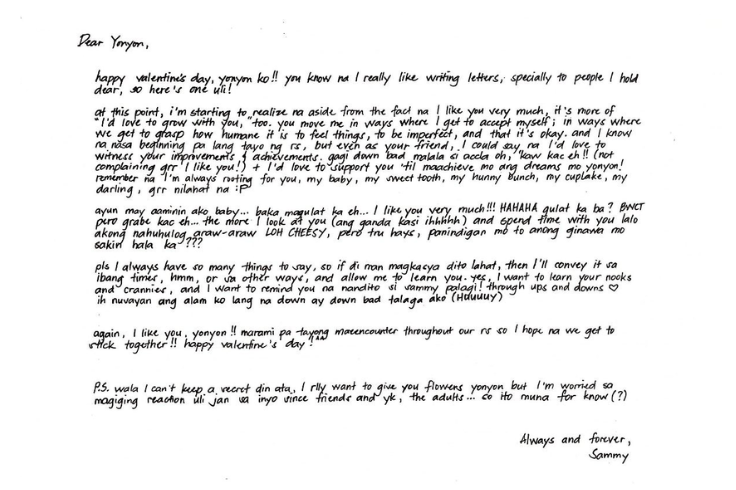 Dear Yonyon,
happy valentine's day, yonyon ko!! you know na I really like writing letters, specially to people I hold
dear, so here's one uli!
at this point, i'm starting to realize na aside from the fact na I like you very much, it's more of
"I'd love to grow with you," too. you move me in ways where I get to accept myself; in ways where
we get to grasp how humane it is to feel things, to be imperfect, and that it's okay. and I know
na nasa beginning pa lang tayo ng rs, but even as your friend, I could say na I'd love to
witness your improvements & achievements. gagi down bad malala si accla oh, ikaw kac eh!! (not
complaining grr I like you!) + I'd love to support you 'til maachieve mo ang dreams mo yonyon!
remember na I'm always rooting for you, my baby, my sweet tooth, my hunny bunch, my cuplake, my
darling, grr nilahat na :P
ayun may aaminin ako baby... baka magulat ka eh... I like you very much!!! HAHAHA gulat ka ba? BWCT
pero grabe kac eh... the more I look at you (ang ganda kasi ihhhhh) and spend time with you lalo
akong nahuhulog araw-araw LOH CHEESY, pero tru hays, panindigan mo to anong ginawa mo
sakin hala ka???
pls I always have so many things to say, so if di man magkacya dito lahat, then I'll convey it sa
ibang times, hmm, or sa other ways, and allow me to learn you. yes, I want to learn your nooks
and crannies, and I want to remind you na nandito si sammy palagi! through ups and downs ♡
ih nuvayan ang alam ko lang na down ay down bad talaga ako (Huuuuy)
again, I like you, yonyon!! marami pa tayong maeencounter throughout our rs so I hope na we get to
stick together!! happy valentine's day!
P.S. wala I can't keep a secret din ata, I rlly want to give you flowers yonyon but I'm worried sa
magiging reaction uli jan sa inyo since friends and yk, the adults... so ito muna for know (?)
Always and forever,
Sammy